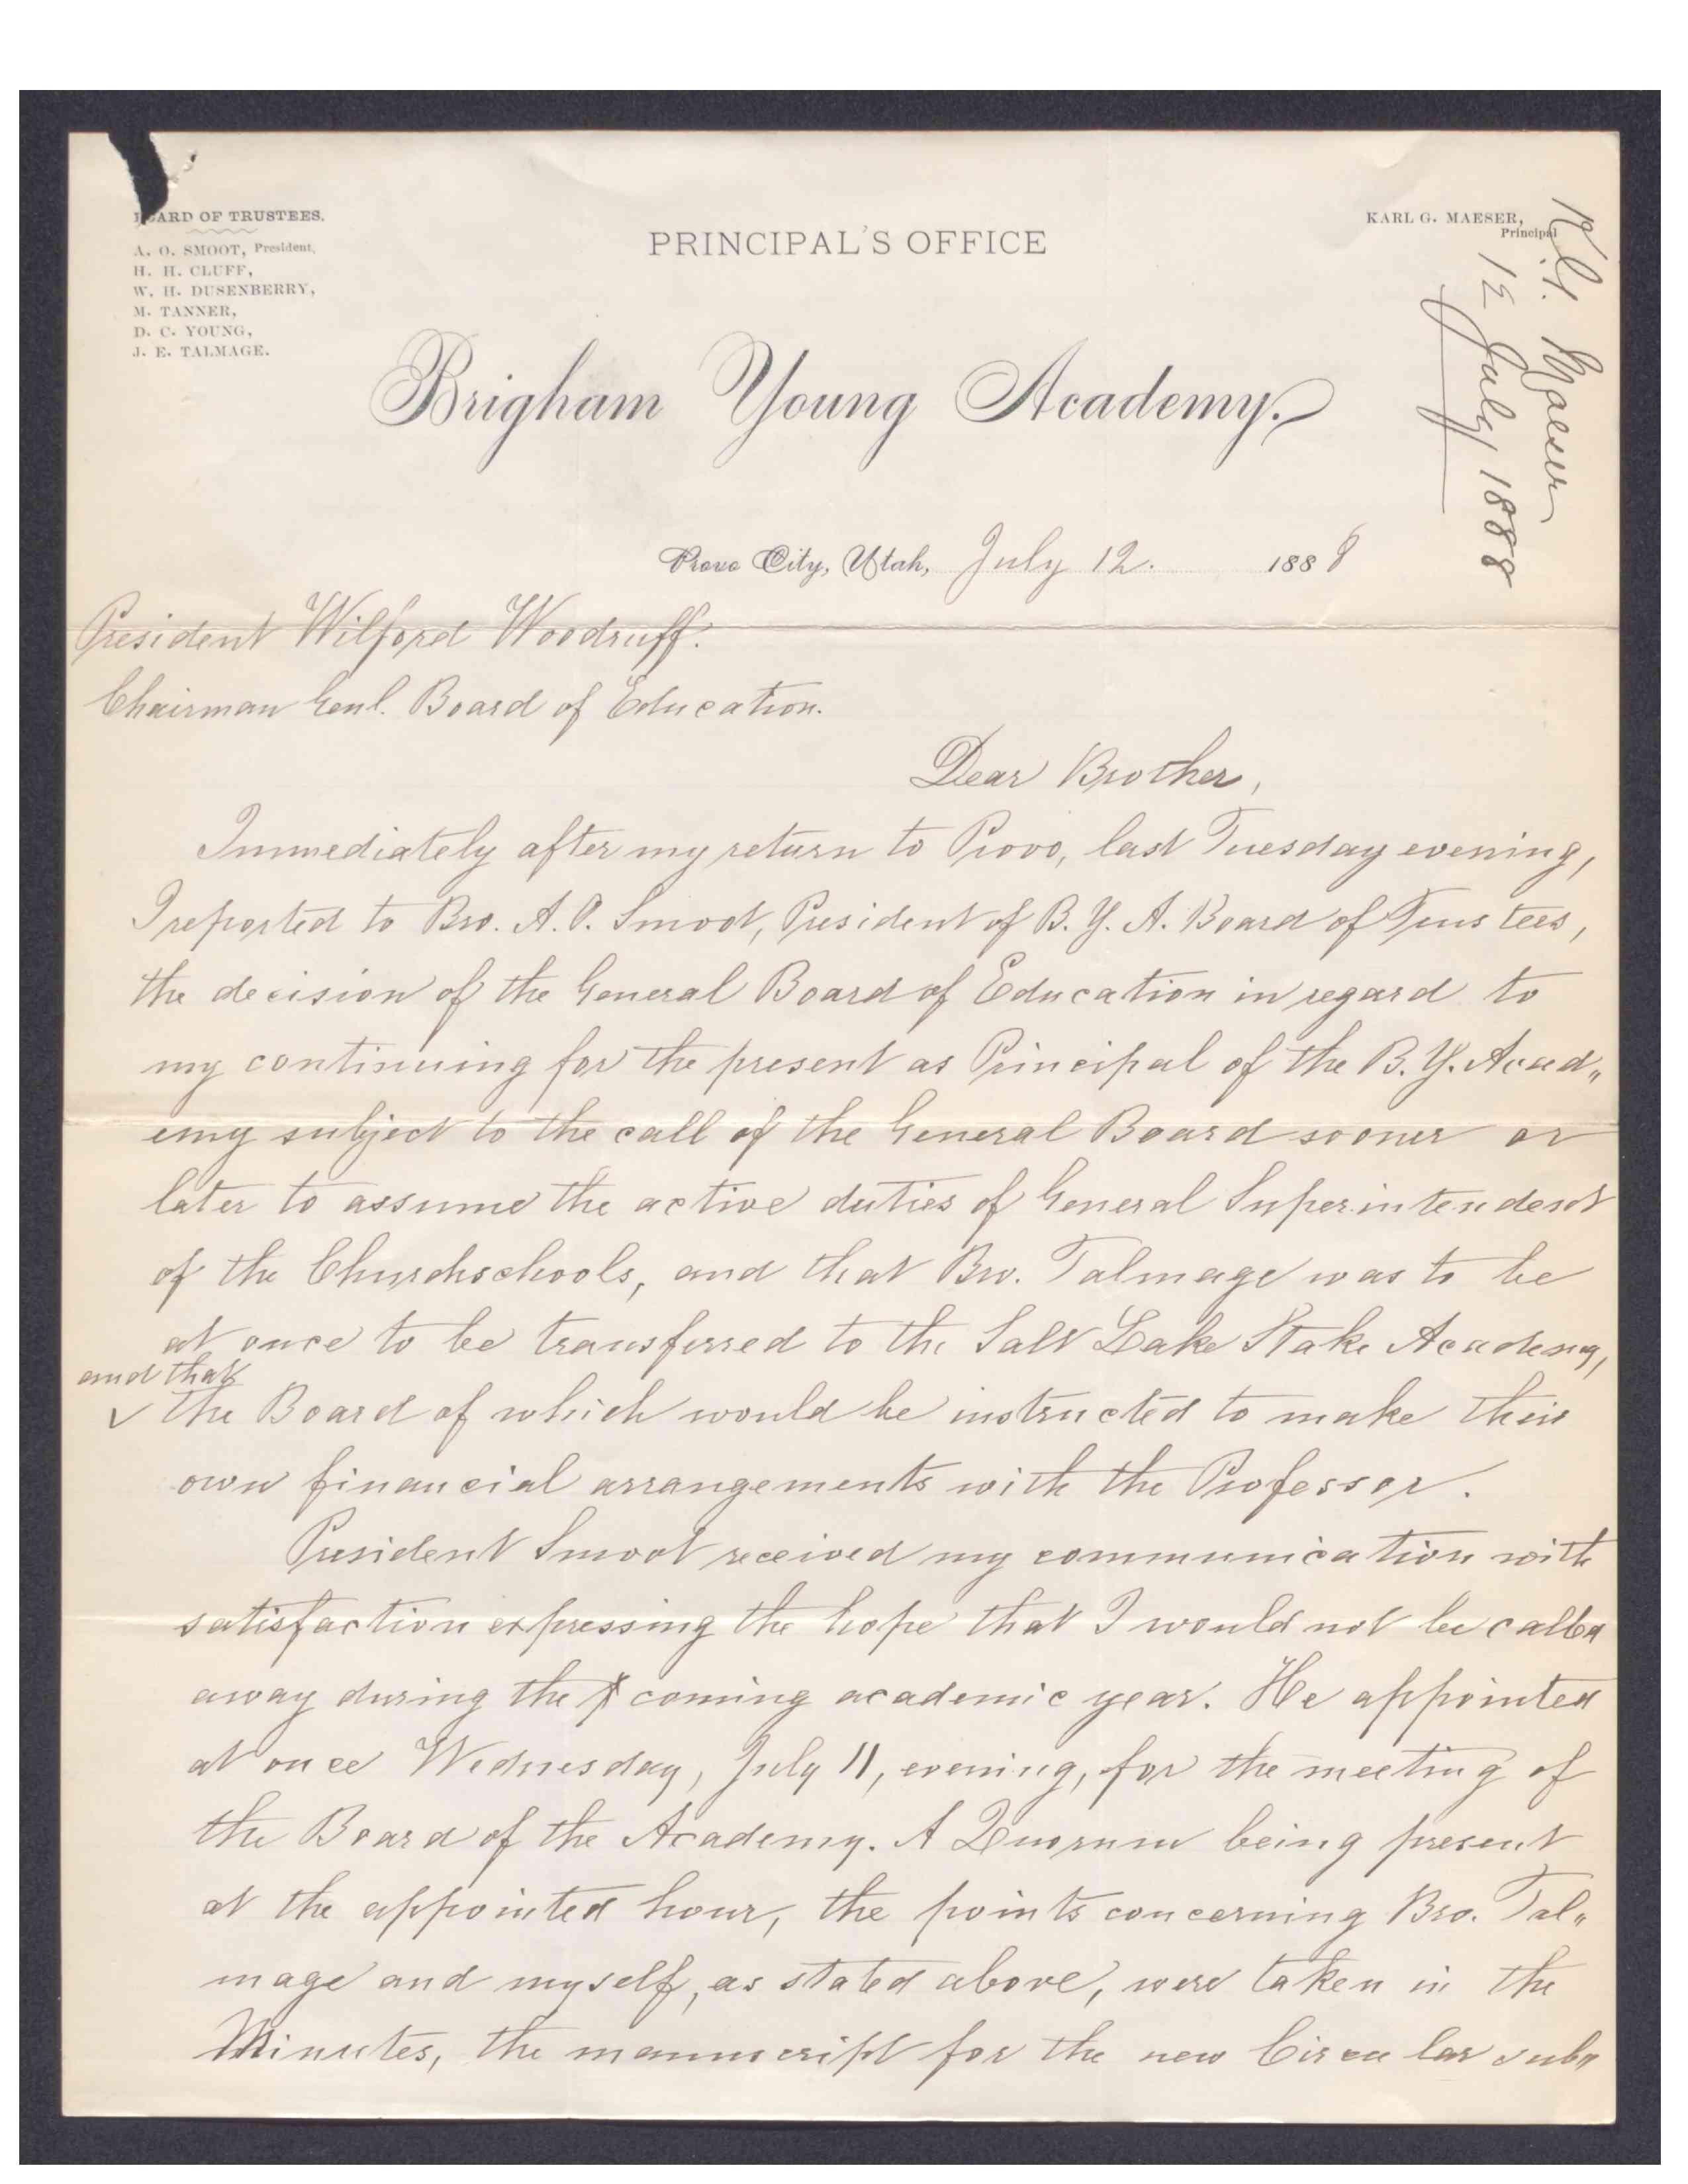 BOARD OF TRUSTEES.
A. O. SMOOT, President,
H. H. CLUFF,
W. H. DUSENBERRY,
M. TANNER,
D. C. YOUNG,
J. E. TALMAGE.
PRINCIPAL'S OFFICE
KARL G. MAESER,
Principal
K.G. Maeser
12 July 1888
Brigham Young Academy.
Provo City, Utah, July 12. 1888
President Wilford Woodruff.
Chairman Genl. Board of Education.
Dear Brother,
Immediately after my return to Provo, last Tuesday evening,
I reported to Bro. A. O. Smoot, President of B. Y. A. Board of Trustees,
the decision of the General Board of Education in regard to
my continuing for the present as Principal of the B. Y. Acad„
emy subject to the call of the General Board sooner or
later to assume the active duties of General Superintendent
of the Churchschools, and that Bro. Talmage was to be
at once to be transferred to the Salt Lake Stake Academy,
and that
✓ the Board of which would be instructed to make their
own financial arrangements with the Professor.
President Smoot received my communication with
satisfaction expressing the hope that I would not be called
away during the coming academic year. He appointed
at once Wednesday, July 11, evening, for the meeting of
the Board of the Academy. A Quorum being present
at the appointed hour, the points concerning Bro. Tal„
mage and myself, as stated above, were taken in the
Minutes, the manuscript for the new Circular sub„